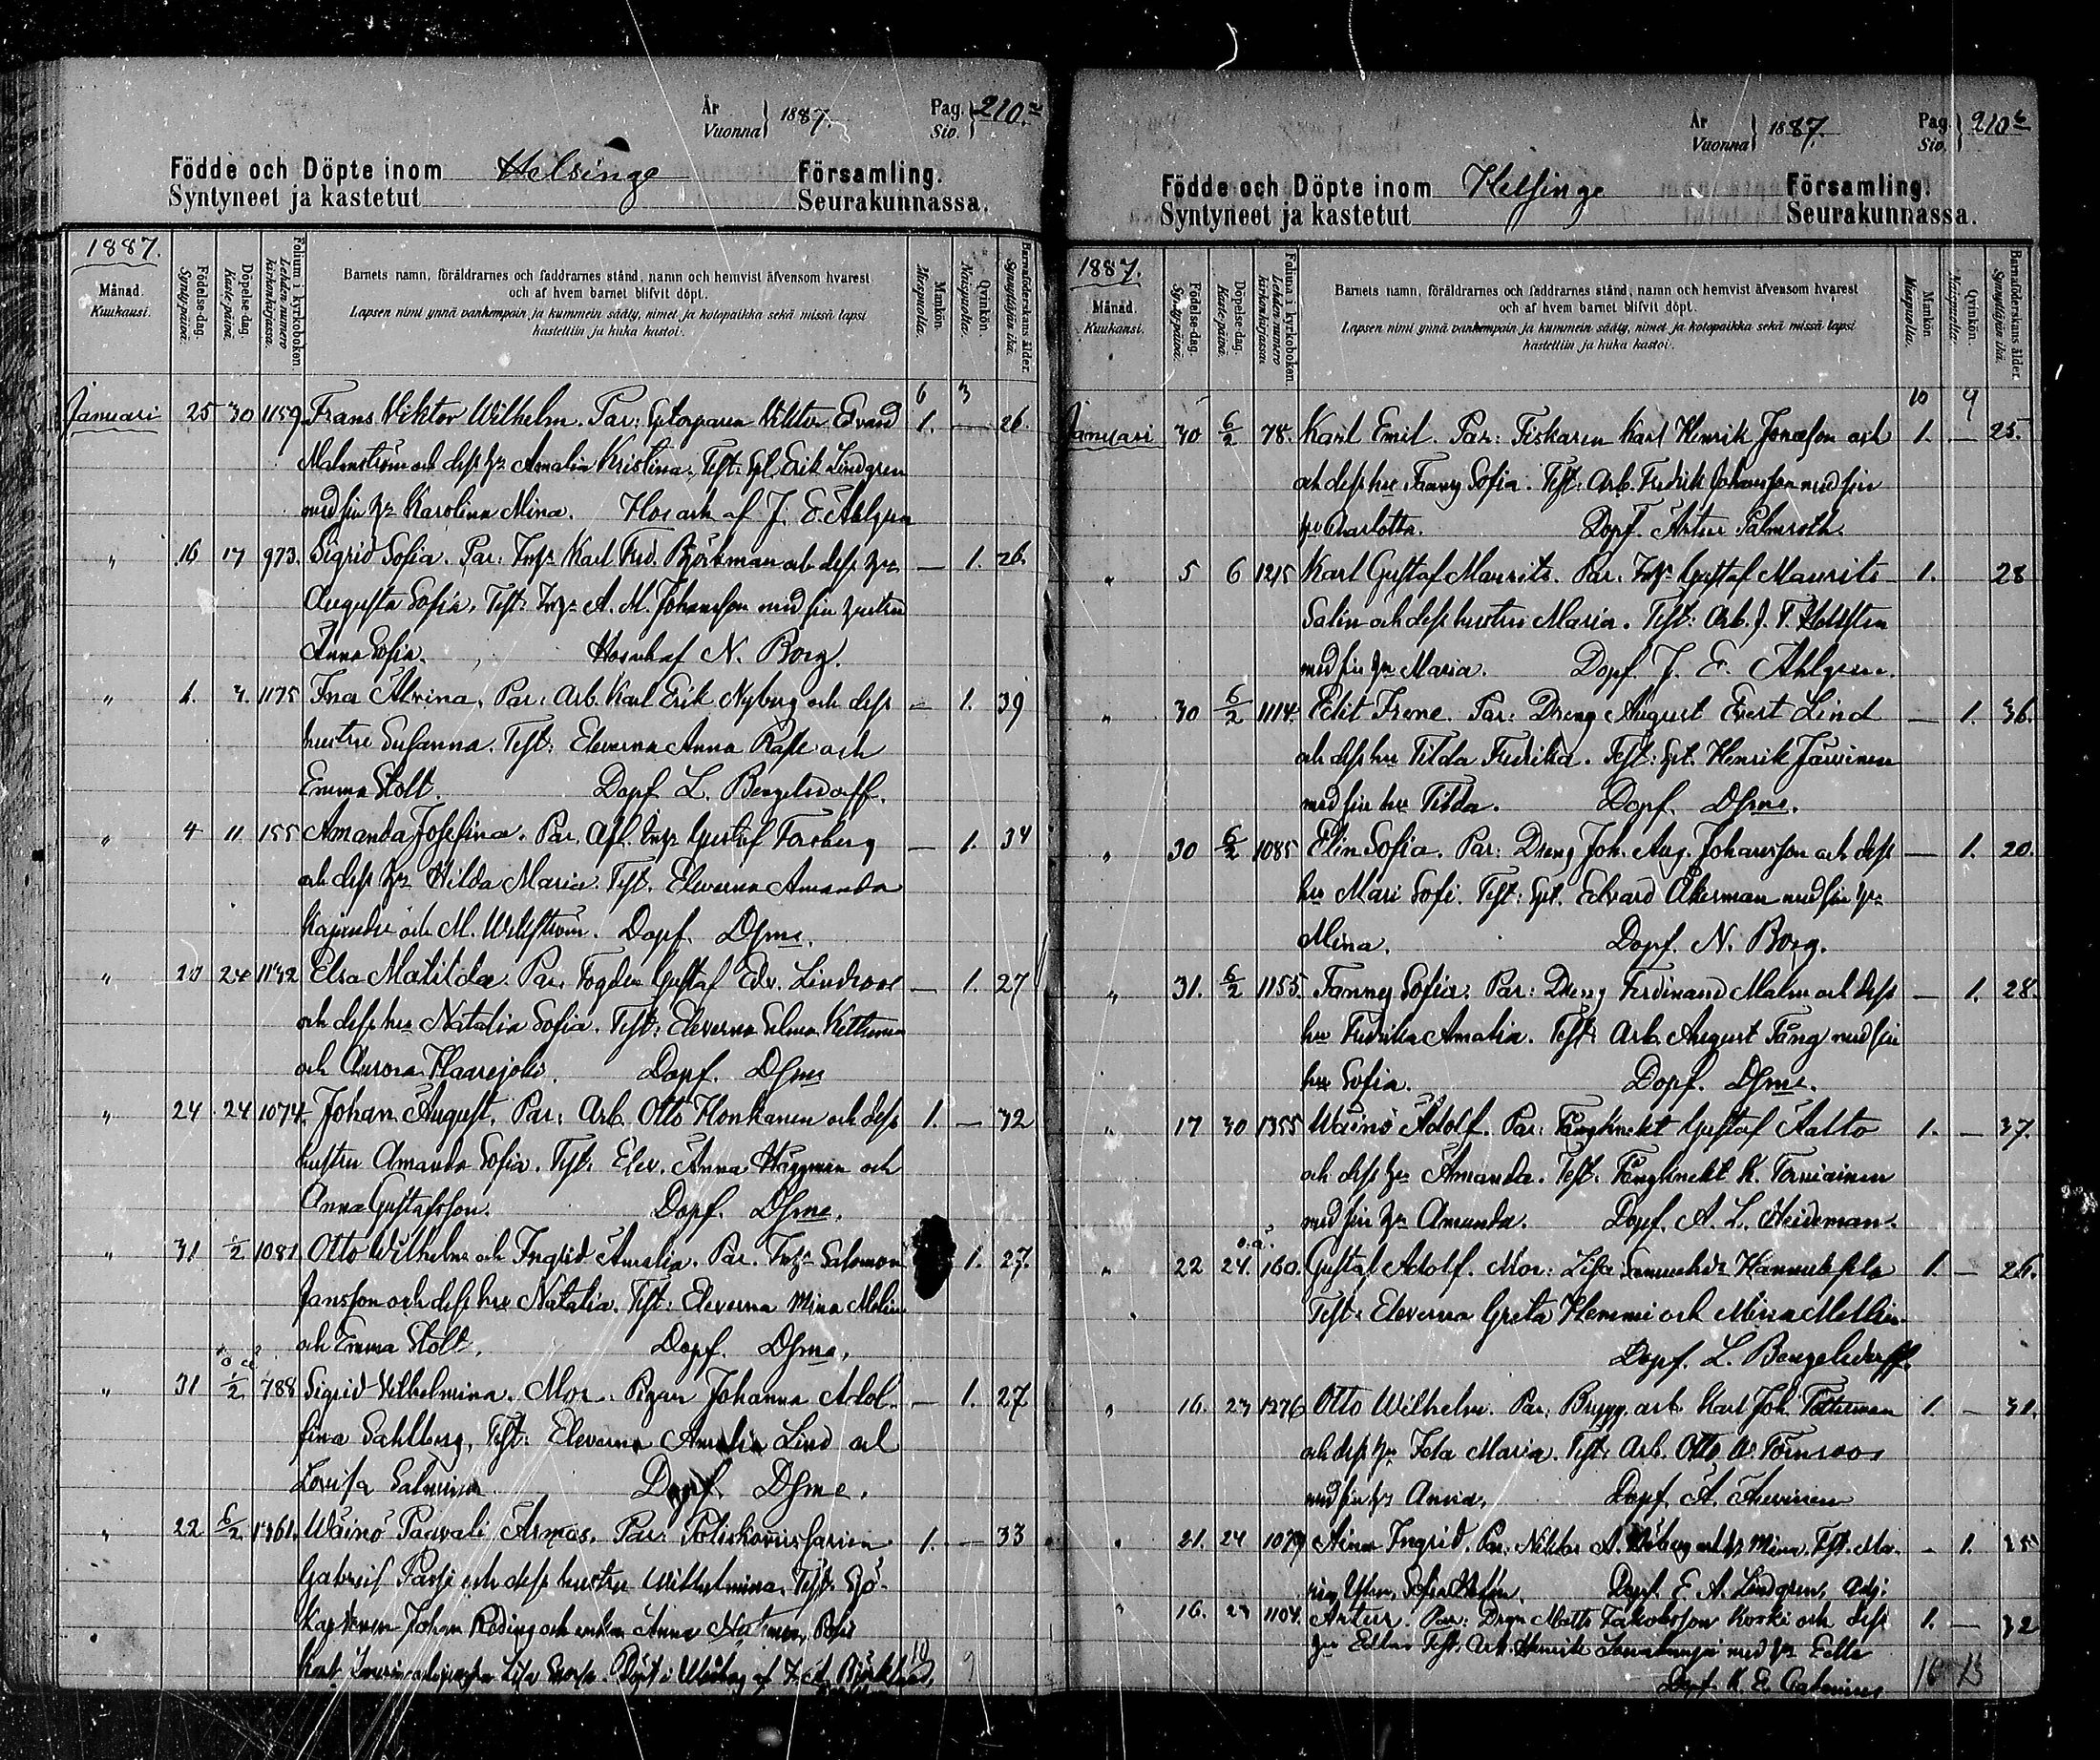 År Vuonna } 1887. Pag. Siv. } 210.a
Födde och Döpte inom Helsinge Församling.
Syntyneet ja kastetut Seurakunnassa.
1887.
Månad. Kuukausi.
Födelse-dag. Syntypäivä.
Döpelse-dag. Kastepäivä.
Folium i kyrkoboken. Lehden numero kirkonkirjassa.
Barnets namn, föräldrarnes och faddrarnes stånd, namn och hemvist äfvensom hvarest
och af hvem barnet blifvit döpt.
Lapsen nimi ynnä vanhempain ja kummein sääty, nimet ja kotopaikka sekä missä lapsi
kastettiin ja kuka kastoi.
Mankön. Miespuolta.
Qvinkön. Naispuolta.
Barnaföderskans ålder. Synnyttäjän ikä.
6 3
Januari 25 30 1159 Frans Viktor Wilhelm. Par: Viktor Edvard 1. — 26.
Malmström och dess hu Amalia Kristina. Test: Erik Lindgren
med sin hu Karolina Mina. J. E. Ahlgren
" 16 17 973. Sigrid Sofia. Par: Karl Fred. Björkman och dess hu — 1. 26.
Augusta Sofia, Test: A. M. Johansson med sin hustru
Anna Sofia. N. Borg.
" 1. 7. 1175 Ina Alvina, Par: Arb. Karl Erik Nyberg och dess — 1. 39
hustru Susanna. Test: Eleverna Anna och
Emma Stolt. Dopf L. Bengelsdorff.
" 4 11 155 Amanda Josefina. Par. Gustaf Forsberg — 1. 34
och dess hu Hilda Maria. Test. Eleverna Amanda
och M. Wellström. Dopf. Dsme.
" 20 24 1132 Elsa Matilda. Par. Fogden Gustaf Edv. Lindroos — 1. 27
och dess hu Natalia Sofia. Test: Eleverna Selma
och Aurora Haarejoki. Dopf. Dsme
" 24 24 1074 Johan August. Par: Arb. Otto Honkanen och dess 1. — 32
hustru Amanda Sofia. Test. Elev. Anna Häggman och
Anna Gustafsson. Dopf. Dsme.
" 31 1/2 1081 Otto Wilhelm och Ingrid Amalia. Par. Salomon 1. 27.
Jansson och dess hu Natalia. Test: Eleverna Mina Molin
och Emma Stolt. Dopf. Dsme.
" 31 1/2 788 Sigrid Vilhelmina. Mor. Pigan Johanna Adol- — 1. 27
fina Sahlberg, Test: Eleverna Amalia Lind och
Lovisa Salminen Dopf. Dsme.
" 22 6/2 1361. Wäinö Paavali Armas. Par: Poliskommissarien 1. — 33
Gabriel och dess hustru Wilhelmina, Test: Sjö-
kaptenen Johan och enkan Anna
10 9
År Vuonna } 1887. Pag. Siv. } 210b
Födde och Döpte inom Helsinge Församling.
Syntyneet ja kastetut Seurakunnassa.
1887.
Månad. Kuukausi.
Födelse-dag. Syntypäivä.
Döpelse-dag. Kastepäivä.
Folium i kyrkoboken. Lehden numero kirkonkirjassa.
Barnets namn, föräldrarnes och faddrarnes stånd, namn och hemvist äfvensom hvarest
och af hvem barnet blifvit döpt.
Lapsen nimi ynnä vanhempain ja kummein sääty, nimet ja kotopaikka sekä missä lapsi
kastettiin ja kuka kastoi.
Mankön. Miespuolta.
Qvinkön. Naispuolta.
Barnaföderskans ålder. Synnyttäjän ikä.
10 9
Januari 30 6/2 78. Karl Emil. Par: Fiskaren Karl Henrik Jonasson och 1. — 25.
och dess hu Fanny Sofia. Test: Arb. Fredrik Johansson med sin
hu Charlotta. Dopf. Artur Palmroth.
" 5 6 1215 Karl Gustaf Maurits. Par. Gustaf Maurits 1. 28
Salin och dess hustru Maria. Test: Arb. J. F. Hollsten
med sin hu Maria. Dopf. J. E. Ahlgren.
" 30 6/2 1114. Edit Irene. Par: Dreng August Evert Lind — 1. 36.
och dess hu Tilda Fredrika. Test: Henrik Järvinen
med sin hu Tilda. Dopf. Dsme.
" 30 6/2 1085 Elin Sofia. Par: Dreng Joh. Aug. Johansson och dess — 1. 20.
hu Mari Sofi. Test: Edvard Åkerman med sin hu
Mina. Dopf. N. Borg.
" 31. 6/2 1155. Fanny Sofia. Par: Dreng Ferdinand Malm och dess — 1. 28.
hu Fredrika Amalia. Test: Arb. August Tång med sin
hu Sofia. Dopf. Dsme.
" 17 30 1355 Wäinö Adolf. Par: Fångknekt Gustaf Aalto 1. — 37.
och dess hu Amanda. Test. Fångknekt K. Torniainen
med sin hu Amanda. Dopf. A. L. Heideman.
" 22 24. 160. Gustaf Adolf. Mor: Lisa 1. — 26.
Test: Eleverna Greta Hemmi och Mina Mellin
Dopf. L. Bengelsdorff.
" 16. 23 1276 Otto Wilhelm. Par: Brygg. arb. Karl Joh. Fotterman 1. — 31.
och dess hu Ida Maria. Test: Arb. Otto W. Törnroos
med sin hu Anna, Dopf. A.
" 21. 24 1079 Aina Ingrid. Par: Niklas A. och hu Mina. Test. Ma- — 1. 25
ria Sofia Dopf. E. A. Lindgren, adj:
" 16. 23 1104. Artur. Par: Dren Matts Jakobsson Koski och dess 1. — 32
hu Edla Test: Arb. Henrik med hu Edla
Dopf. K. E.
16 13